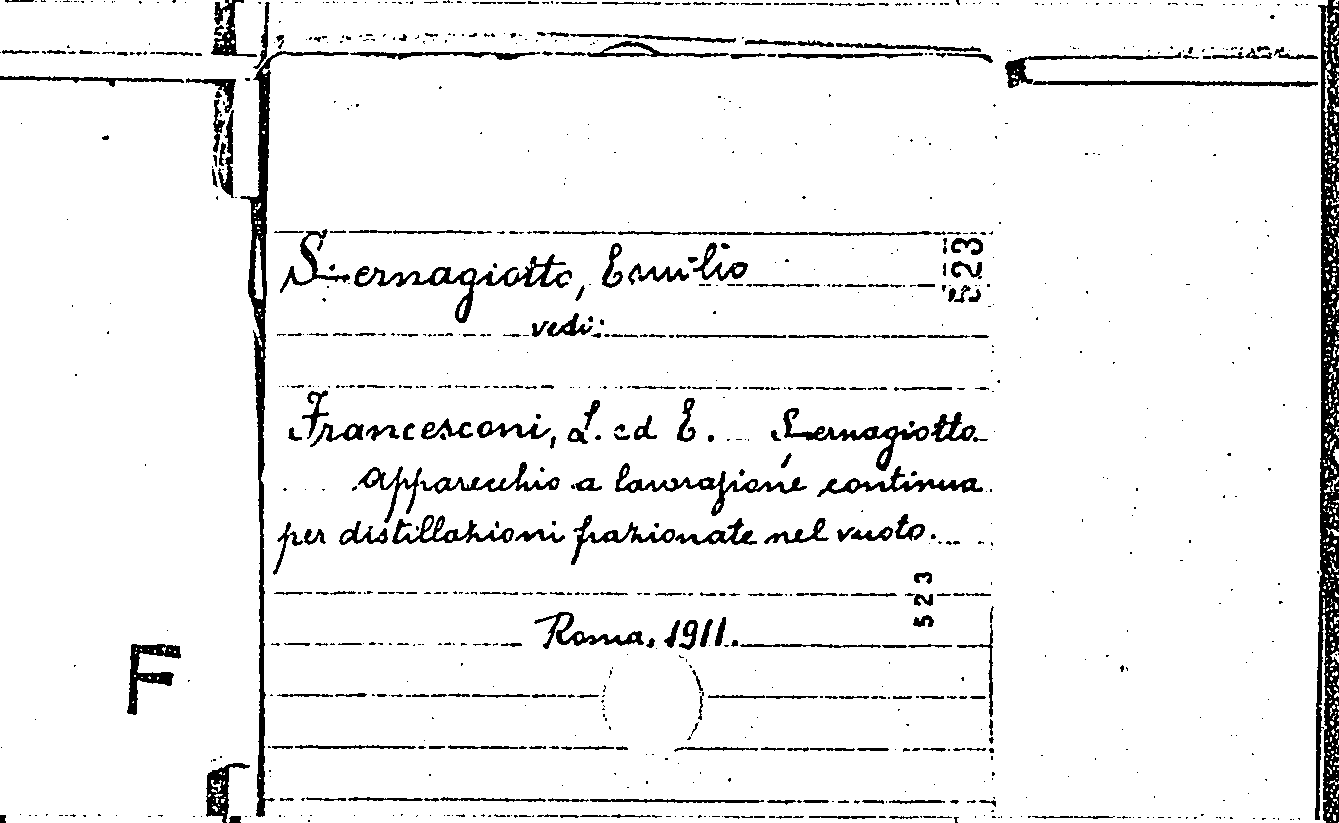 Sernagiotto, Emilio
523
vedi:
Francesconi, L. ed E. Sernagiotto
Apparecchio a lavorazione continua
per distillazioni frazionate nel vuoto.
523
Roma, 1911.
F